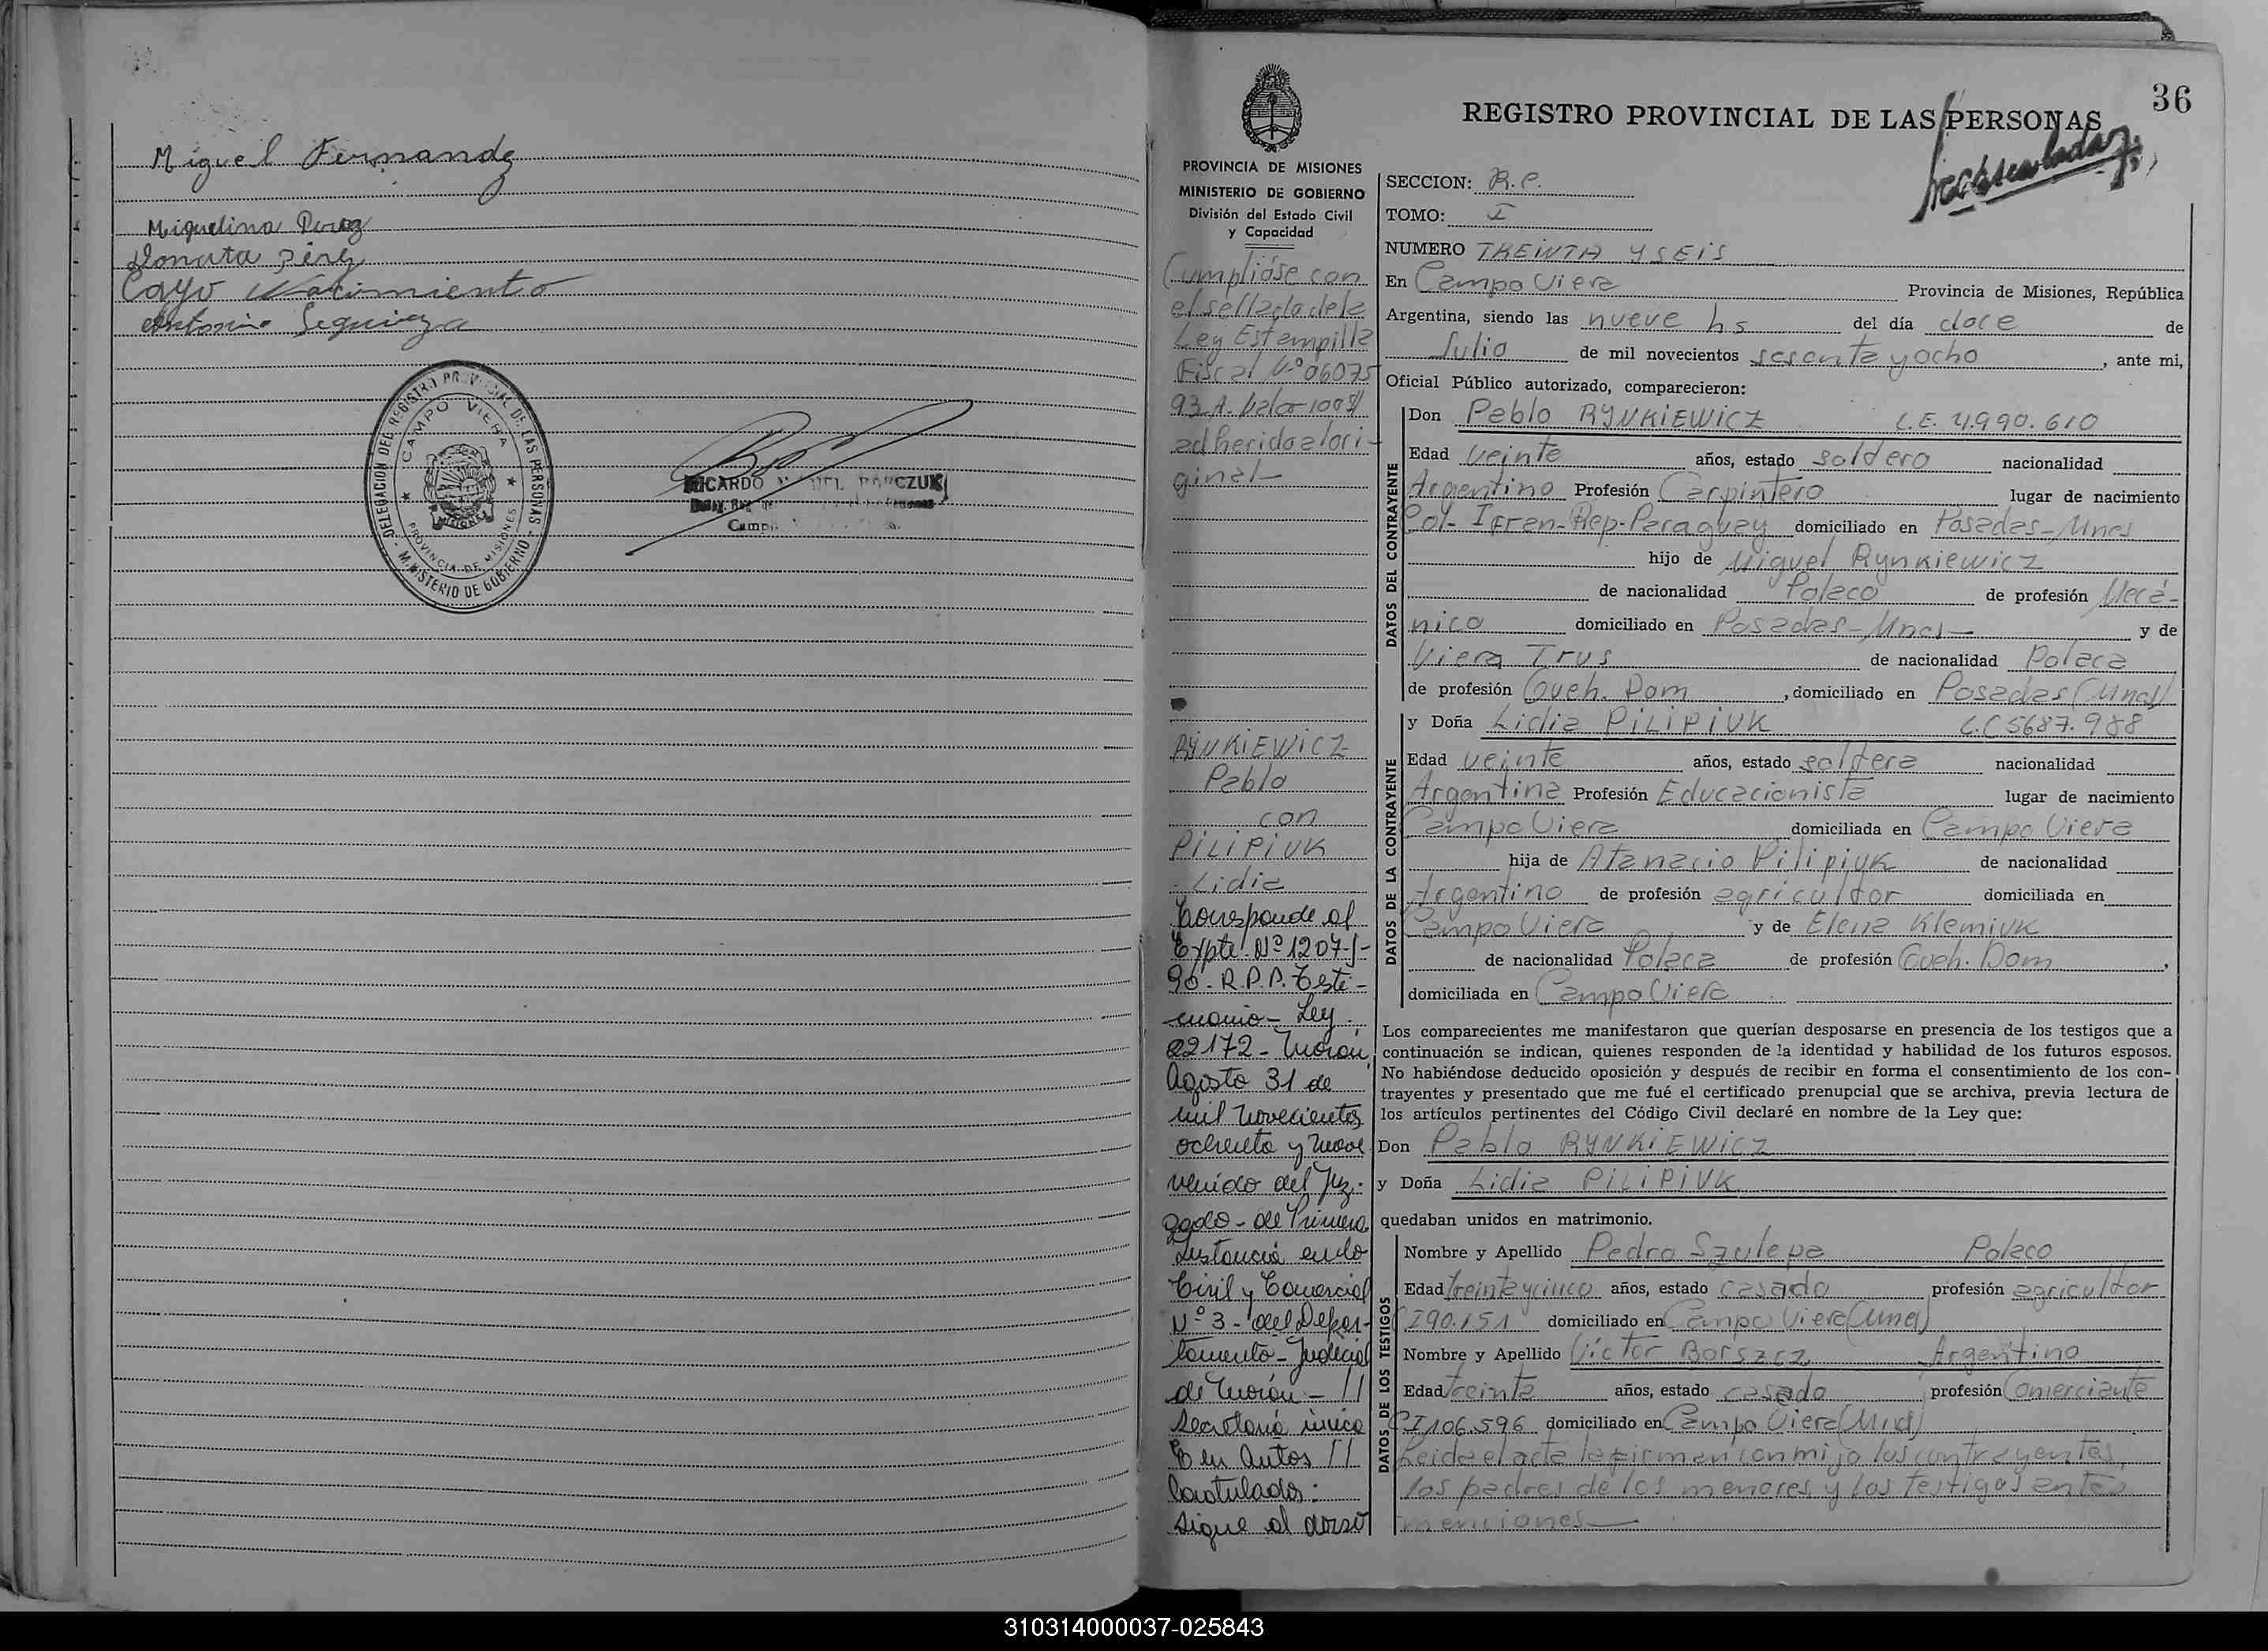 Miguel Fernandz
Miguelina Perez
Donata Pérez
Cayo Nacimiento
Antonio Sequeira
DELEGACION DEL REGISTRO PROVINCIAL DE LAS PERSONAS
CAMPO VIERA
MISIONES
PROVINCIA DE MISIONES
MINISTERIO DE GOBIERNO
RICARDO
36
REGISTRO PROVINCIAL DE LAS PERSONAS
PROVINCIA DE MISIONES
MINISTERIO DE GOBIERNO
División del Estado Civil
y Capacidad
Cumplióse con
el sellado de la
Ley Estampilla
Fiscal Nº 06075
93 A. Valor 100$
adherido al ori-
ginal-
RYNKIEWICZ
Pablo
con
PILIPIUK
Lidia
Corresponde al
Expte. Nº 1207-J-
90. R.P.P. Testi-
monio - Ley
22172 - Morón
Agosto 31 de
mil novecientos
ochenta y nueve
venido del Juz-
gado - de Primera
Instancia en lo
Civil y Comercial
Nº 3 - del Depar-
tamento - Judicial
de Morón - //
Secretaría única
E en Autos //
Caratulados:
sigue al dorso
SECCION: R.P.
TOMO: I
NUMERO TREINTA Y SEIS
En Campo Viera Provincia de Misiones, República
Argentina, siendo las nueve hs del día doce de
Julio de mil novecientos sesenta y ocho, ante mi,
Oficial Público autorizado, comparecieron:
DATOS DEL CONTRAYENTE
Don Pablo RYNKIEWICZ L.E. 4.990.610
Edad veinte años, estado soltero nacionalidad
Argentino Profesión Carpintero lugar de nacimiento
Col- Fran- Rep. Paraguay domiciliado en Posadas-Mnes
hijo de Miguel Rynkiewicz
de nacionalidad Polaco de profesión Mecá-
nico domiciliado en Posadas-Mnes- y de
Viera Trus de nacionalidad Polaca
de profesión Queh. Dom, domiciliado en Posadas (Mnes)
DATOS DE LA CONTRAYENTE
y Doña Lidia PILIPIUK L.C 5687.988
Edad veinte años, estado soltera nacionalidad
Argentina Profesión Educacionista lugar de nacimiento
Campo Viera domiciliada en Campo Viera
hija de Atanacio Pilipiuk de nacionalidad
Argentino de profesión agricultor domiciliada en
Campo Viera y de Elena Klemiuk
de nacionalidad Polaca de profesión Queh. Dom,
domiciliada en Campo Viera
Los comparecientes me manifestaron que querían desposarse en presencia de los testigos que a
continuación se indican, quienes responden de la identidad y habilidad de los futuros esposos.
No habiéndose deducido oposición y después de recibir en forma el consentimiento de los con-
trayentes y presentado que me fué el certificado prenupcial que se archiva, previa lectura de
los artículos pertinentes del Código Civil declaré en nombre de la Ley que:
Don Pablo RYNKIEWICZ
y Doña Lidia PILIPIUK
quedaban unidos en matrimonio.
DATOS DE LOS TESTIGOS
Nombre y Apellido Pedro Szulepa Polaco
Edad treinta y cinco años, estado casado profesión agricultor
CI 90.151 domiciliado en Campo Viera (Mnes)
Nombre y Apellido Víctor Borszcz Argentino
Edad treinta años, estado casado profesión Comerciante
CI 106.596 domiciliado en Campo Viera (Mnes)
Leida el acta la firman conmigo los contrayentes,
los padres de los menores y los testigos antes
menciones
310314000037-025843